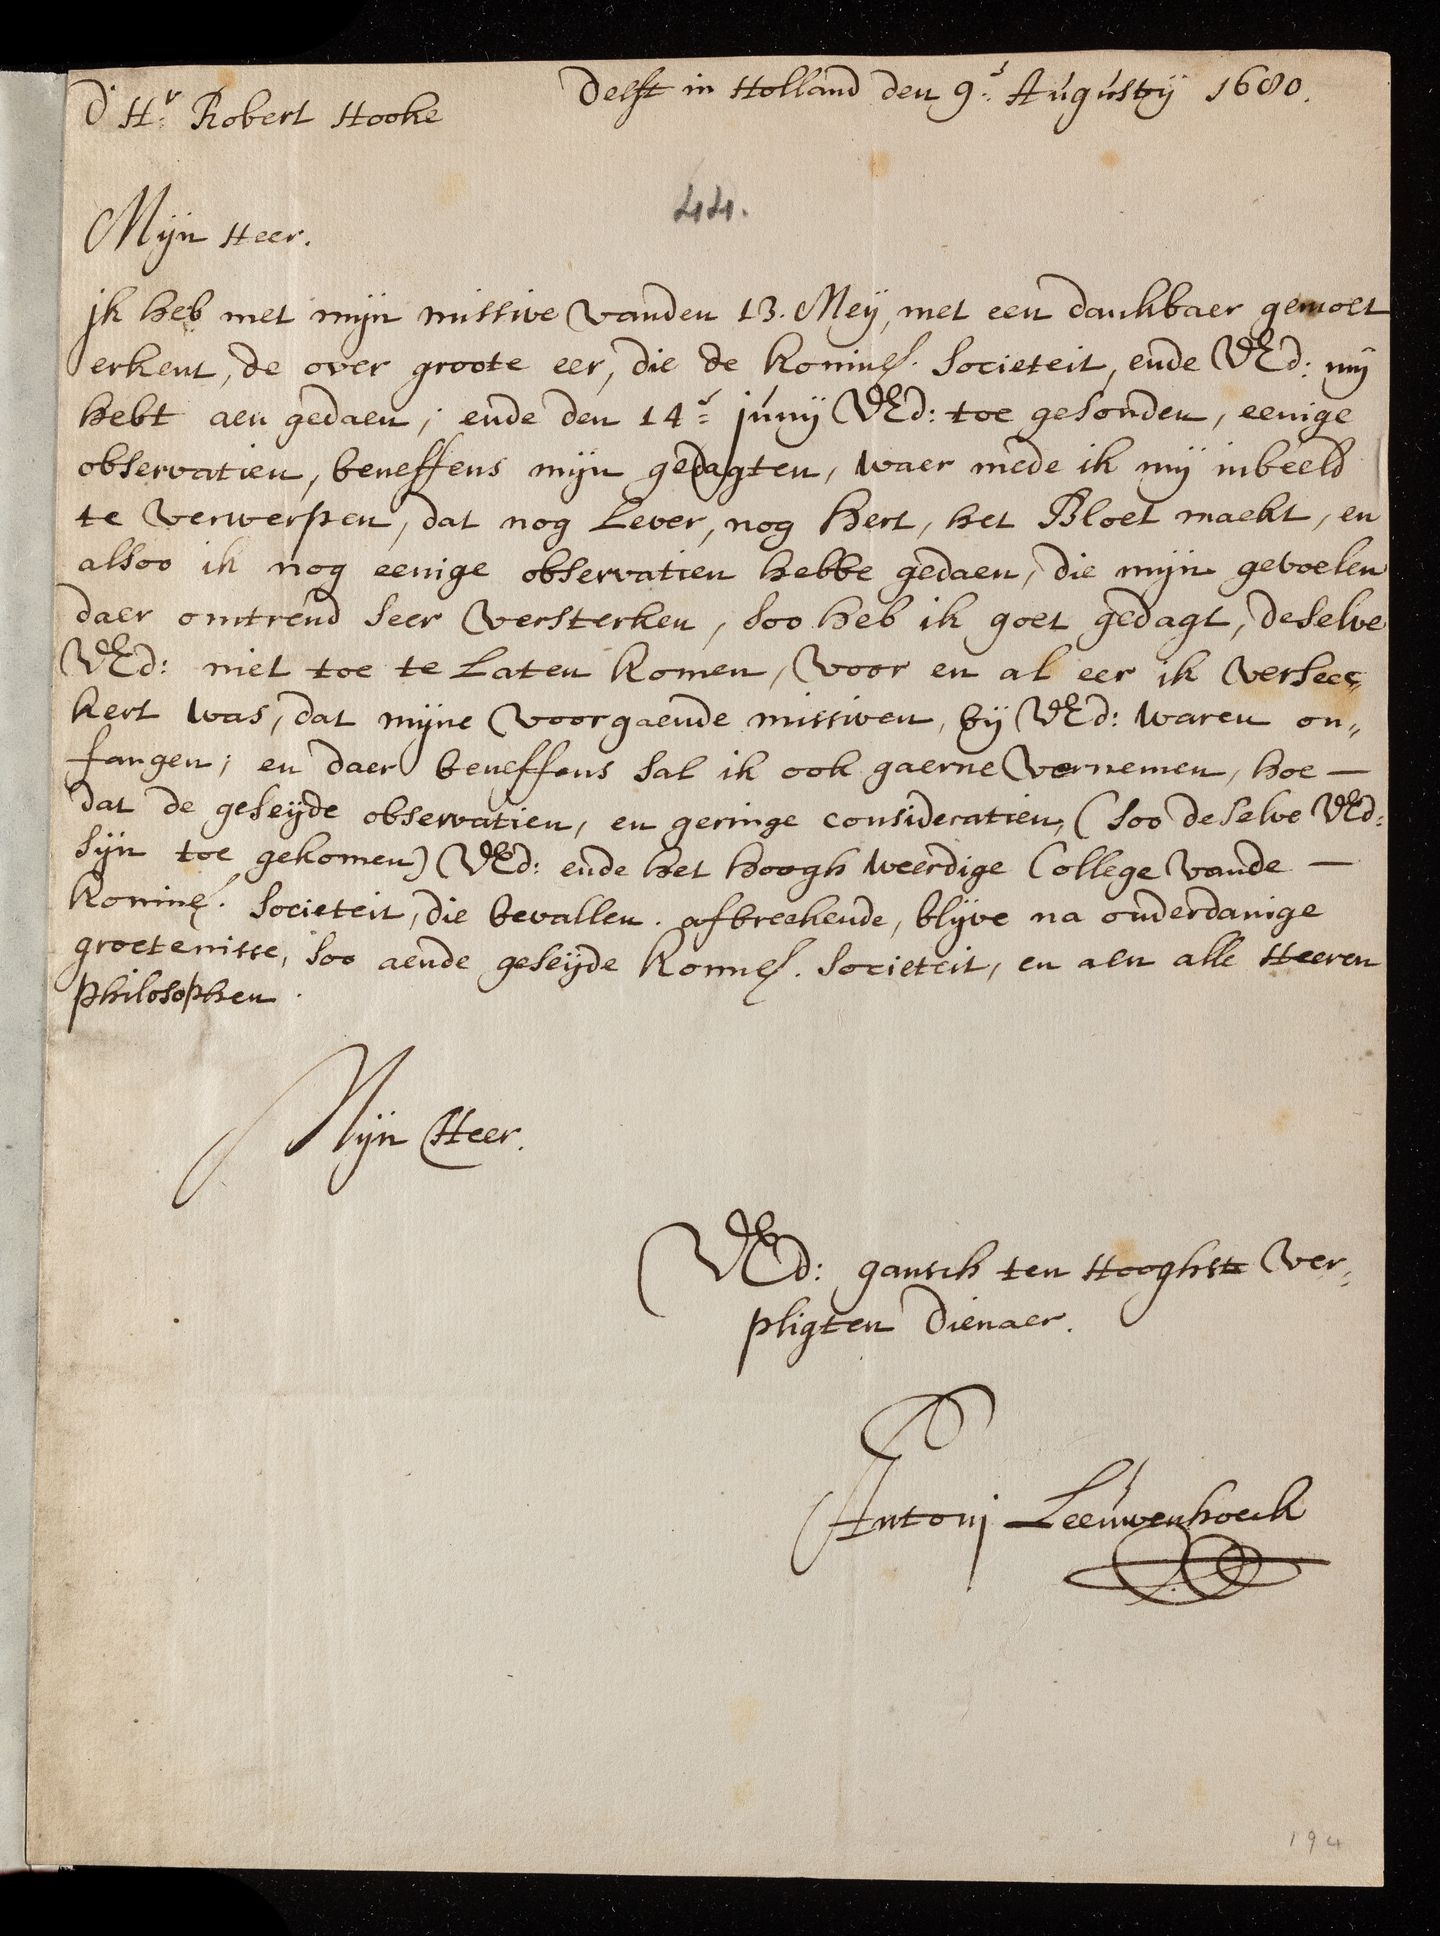 Delft in Holland den 9.e Augustij 1680.
d' Hr. Robert Hooke
44.
Mijn Heer.
jk heb met mijn missive vanden 13. Meij, met een danckbaer gemoet
erkent, de over groote eer, die de Konincl. Societeit, ende VEd: mij
hebt aen gedaen; ende den 14e junij VEd: toe gesonden, eenige
observatien, beneffens mijn gedagten, waer mede ik mij inbeeld
te verwerpen, dat nog Lever, nog Hert, het Bloet maekt, en
alsoo ik nog eenige observatien hebbe gedaen, die mijn gevoelen
daer omtrend seer versterken, soo heb ik goet gedagt, deselve
VEd: niet toe te Laten komen, voor en al eer ik versec„
kert was, dat mijne voorgaende missiven, bij VEd: waren on„
fangen; en daer beneffens sal ik ook gaerne vernemen, hoe —
dat de geseijde observatien, en geringe consideratien, (soo deselve VEd:
sijn toe gekomen) VEd: ende het hoogh weerdige College vande —
Konincl. Societeit, die bevallen. afbreekende, blijve na onderdanige
groetenisse, soo aende geseijde Konincl. Societeit, en aen alle Heeren
philosophen.
Mijn Heer.
VEd: gansch ten Hooghste ver„
pligten Dienaer.
Antonj Leeuwenhoeck
194